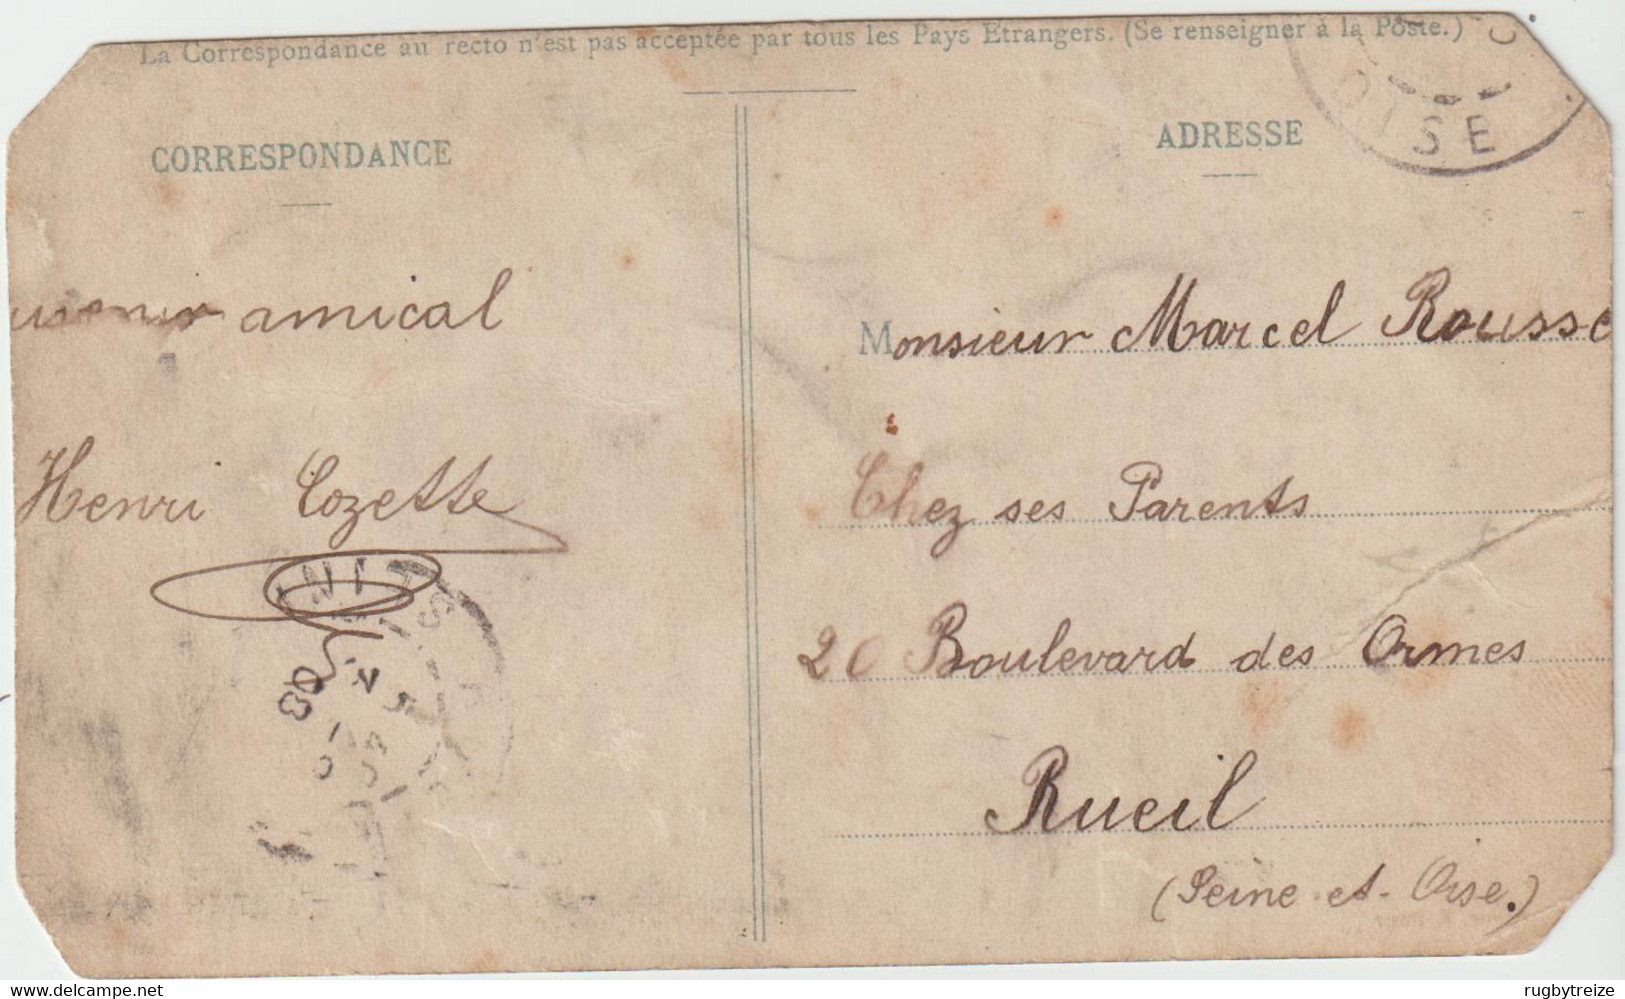 La Correspondance au recto n'est pas acceptée par tous les Pays Etrangers. (Se renseigner à la Poste.)
CORRESPONDANCE
amical
Henri Cozette
ADRESSE
OISE
Monsieur Marcel Rousse
Chez ses Parents
20 Boulevard des Ormes
Rueil
(Seine-et-Oise.)
08
www.delcampe.net
rugbytreize